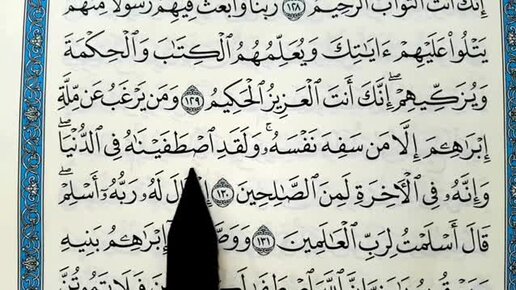 إِنَّكَ أَنتَ ٱلتَّوَّابُ ٱلرَّحِيمُ ١٢٨ رَبَّنَا وَٱبْعَثْ فِيهِمْ رَسُولًا مِّنْهُمْ
يَتْلُوا۟ عَلَيْهِمْ ءَايَـٰتِكَ وَيُعَلِّمُهُمُ ٱلْكِتَـٰبَ وَٱلْحِكْمَةَ
وَيُزَكِّيهِمْ ۚ إِنَّكَ أَنتَ ٱلْعَزِيزُ ٱلْحَكِيمُ ١٢٩ وَمَن يَرْغَبُ عَن مِّلَّةِ
إِبْرَٰهِـۧمَ إِلَّا مَن سَفِهَ نَفْسَهُۥ ۚ وَلَقَدِ ٱصْطَفَيْنَـٰهُ فِى ٱلدُّنْيَا ۖ
وَإِنَّهُۥ فِى ٱلْـَٔاخِرَةِ لَمِنَ ٱلصَّـٰلِحِينَ ١٣٠ لَهُۥ رَبُّهُۥٓ أَسْلِمْ ۖ
قَالَ أَسْلَمْتُ لِرَبِّ ٱلْعَـٰلَمِينَ ١٣١ إِبْرَٰهِـۧمُ بَنِيهِ